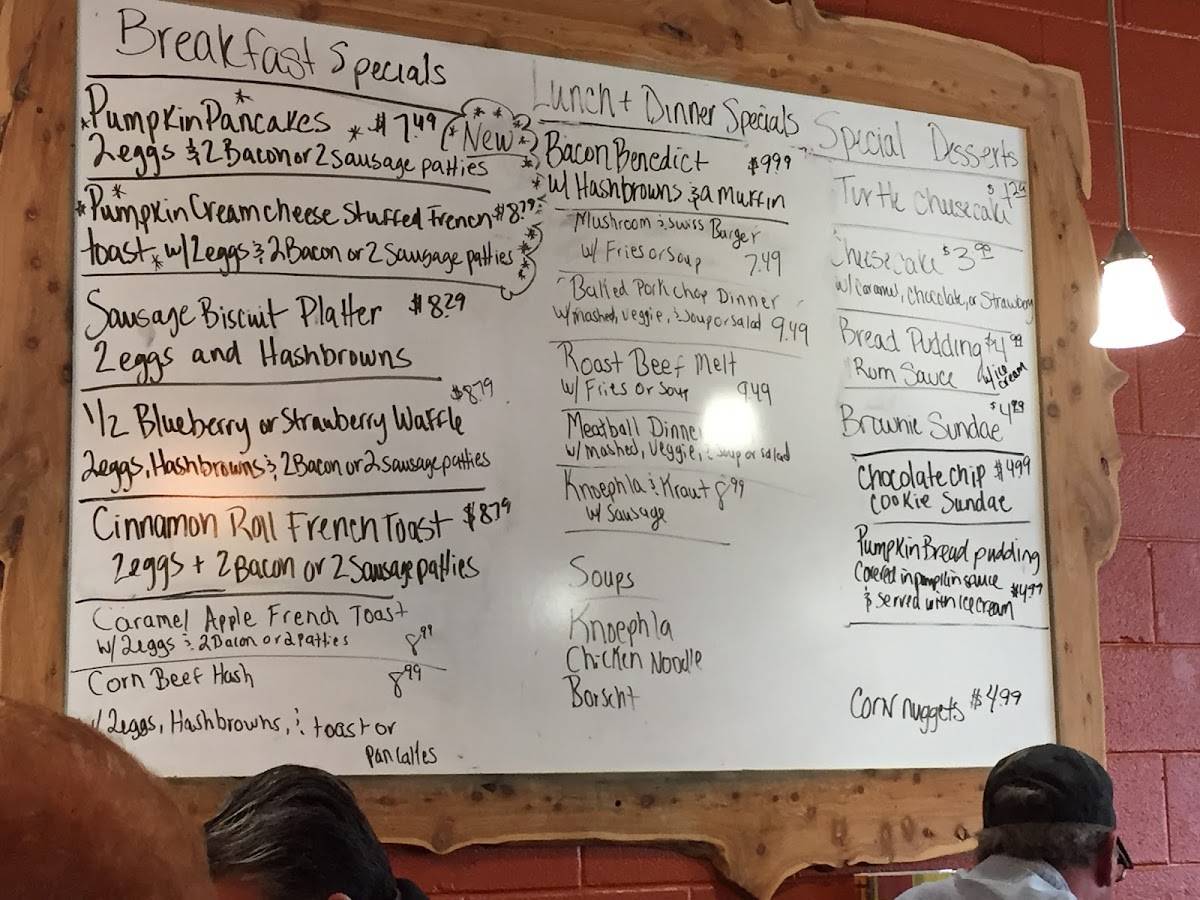 Breakfast Specials
Pumpkin Pancakes $7.49
2eggs & 2 Bacon or 2 sausage patties
(New)
Pumpkin Creamcheese Stuffed French $8.79
toast w/2eggs & 2 Bacon or 2 Sausage patties
Sausage Biscuit Platter $8.29
2eggs and Hashbrowns
$8.79
1/2 Blueberry or Strawberry Waffle
2eggs, Hashbrowns & 2 Bacon or 2 sausage patties
Cinnamon Roll French Toast $8.79
2eggs + 2 Bacon or 2 Sausage patties
Caramel Apple French Toast
w/ 2eggs & 2 Bacon or 2 patties 8.99
Corn Beef Hash 8.99
w/ 2eggs, Hashbrowns, & toast or
pancakes
Lunch + Dinner Specials
Bacon Benedict $9.99
w/ Hashbrowns & a muffin
Mushroom & Swiss Burger
w/ Fries or Soup 7.49
Baked Pork chop Dinner
w/mashed, veggie, & soup or salad 9.49
Roast Beef Melt
w/ Fries or Soup 9.49
Meatball Dinner
w/mashed, veggie, & soup or salad
Knoephla & Kraut 8.99
w/ Sausage
Soups
Knoephla
Chicken Noodle
Borscht
Special Desserts
Turtle Cheesecake
Cheesecake $3.99
w/ Caramel, Chocolate, or Strawberry
Bread Pudding $4.99
Rum Sauce w/ice cream
$4.99
Brownie Sundae
Chocolate chip $4.99
cookie Sundae
Pumpkin Bread pudding
Covered in pumpkin sauce
& Served with Ice Cream $4.99
Corn nuggets $4.99